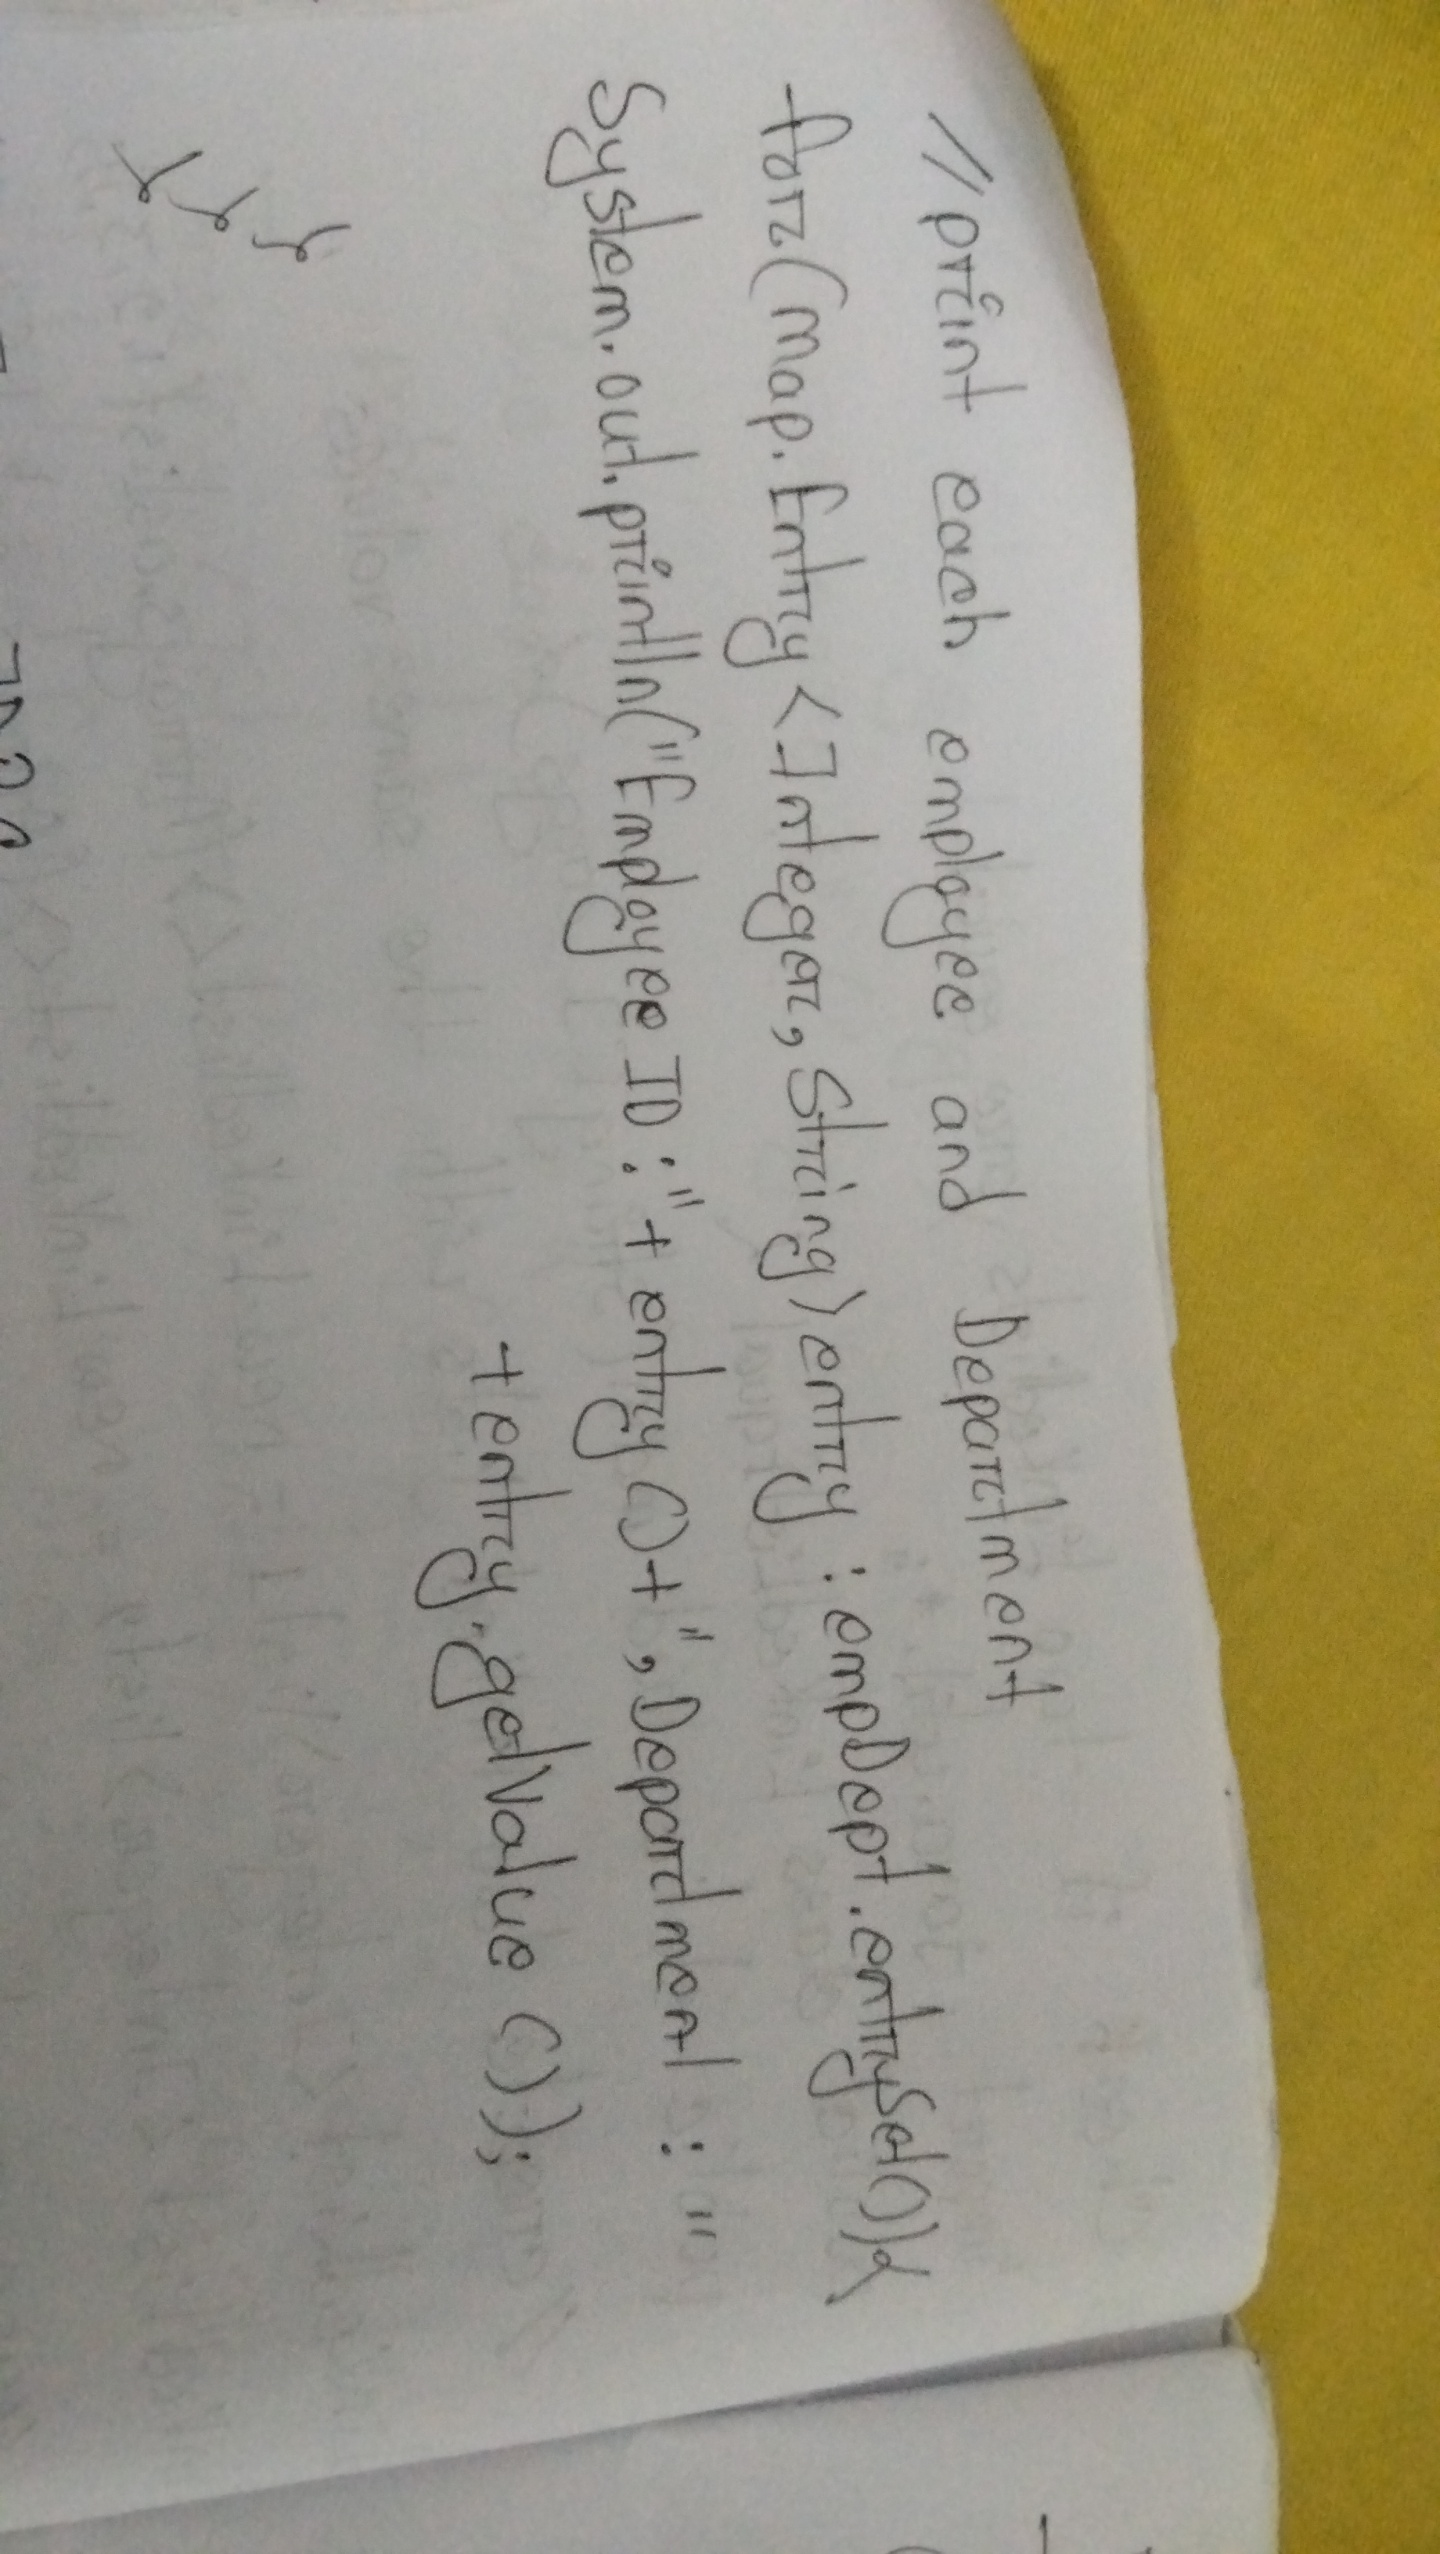 //print each employee and Department
for(map.Entry<Integer,String>entry : empDept.entrySet()){
System.out.println("Employee ID:"+ entry()+",Department : "
+entry.getValue());
}
}
}